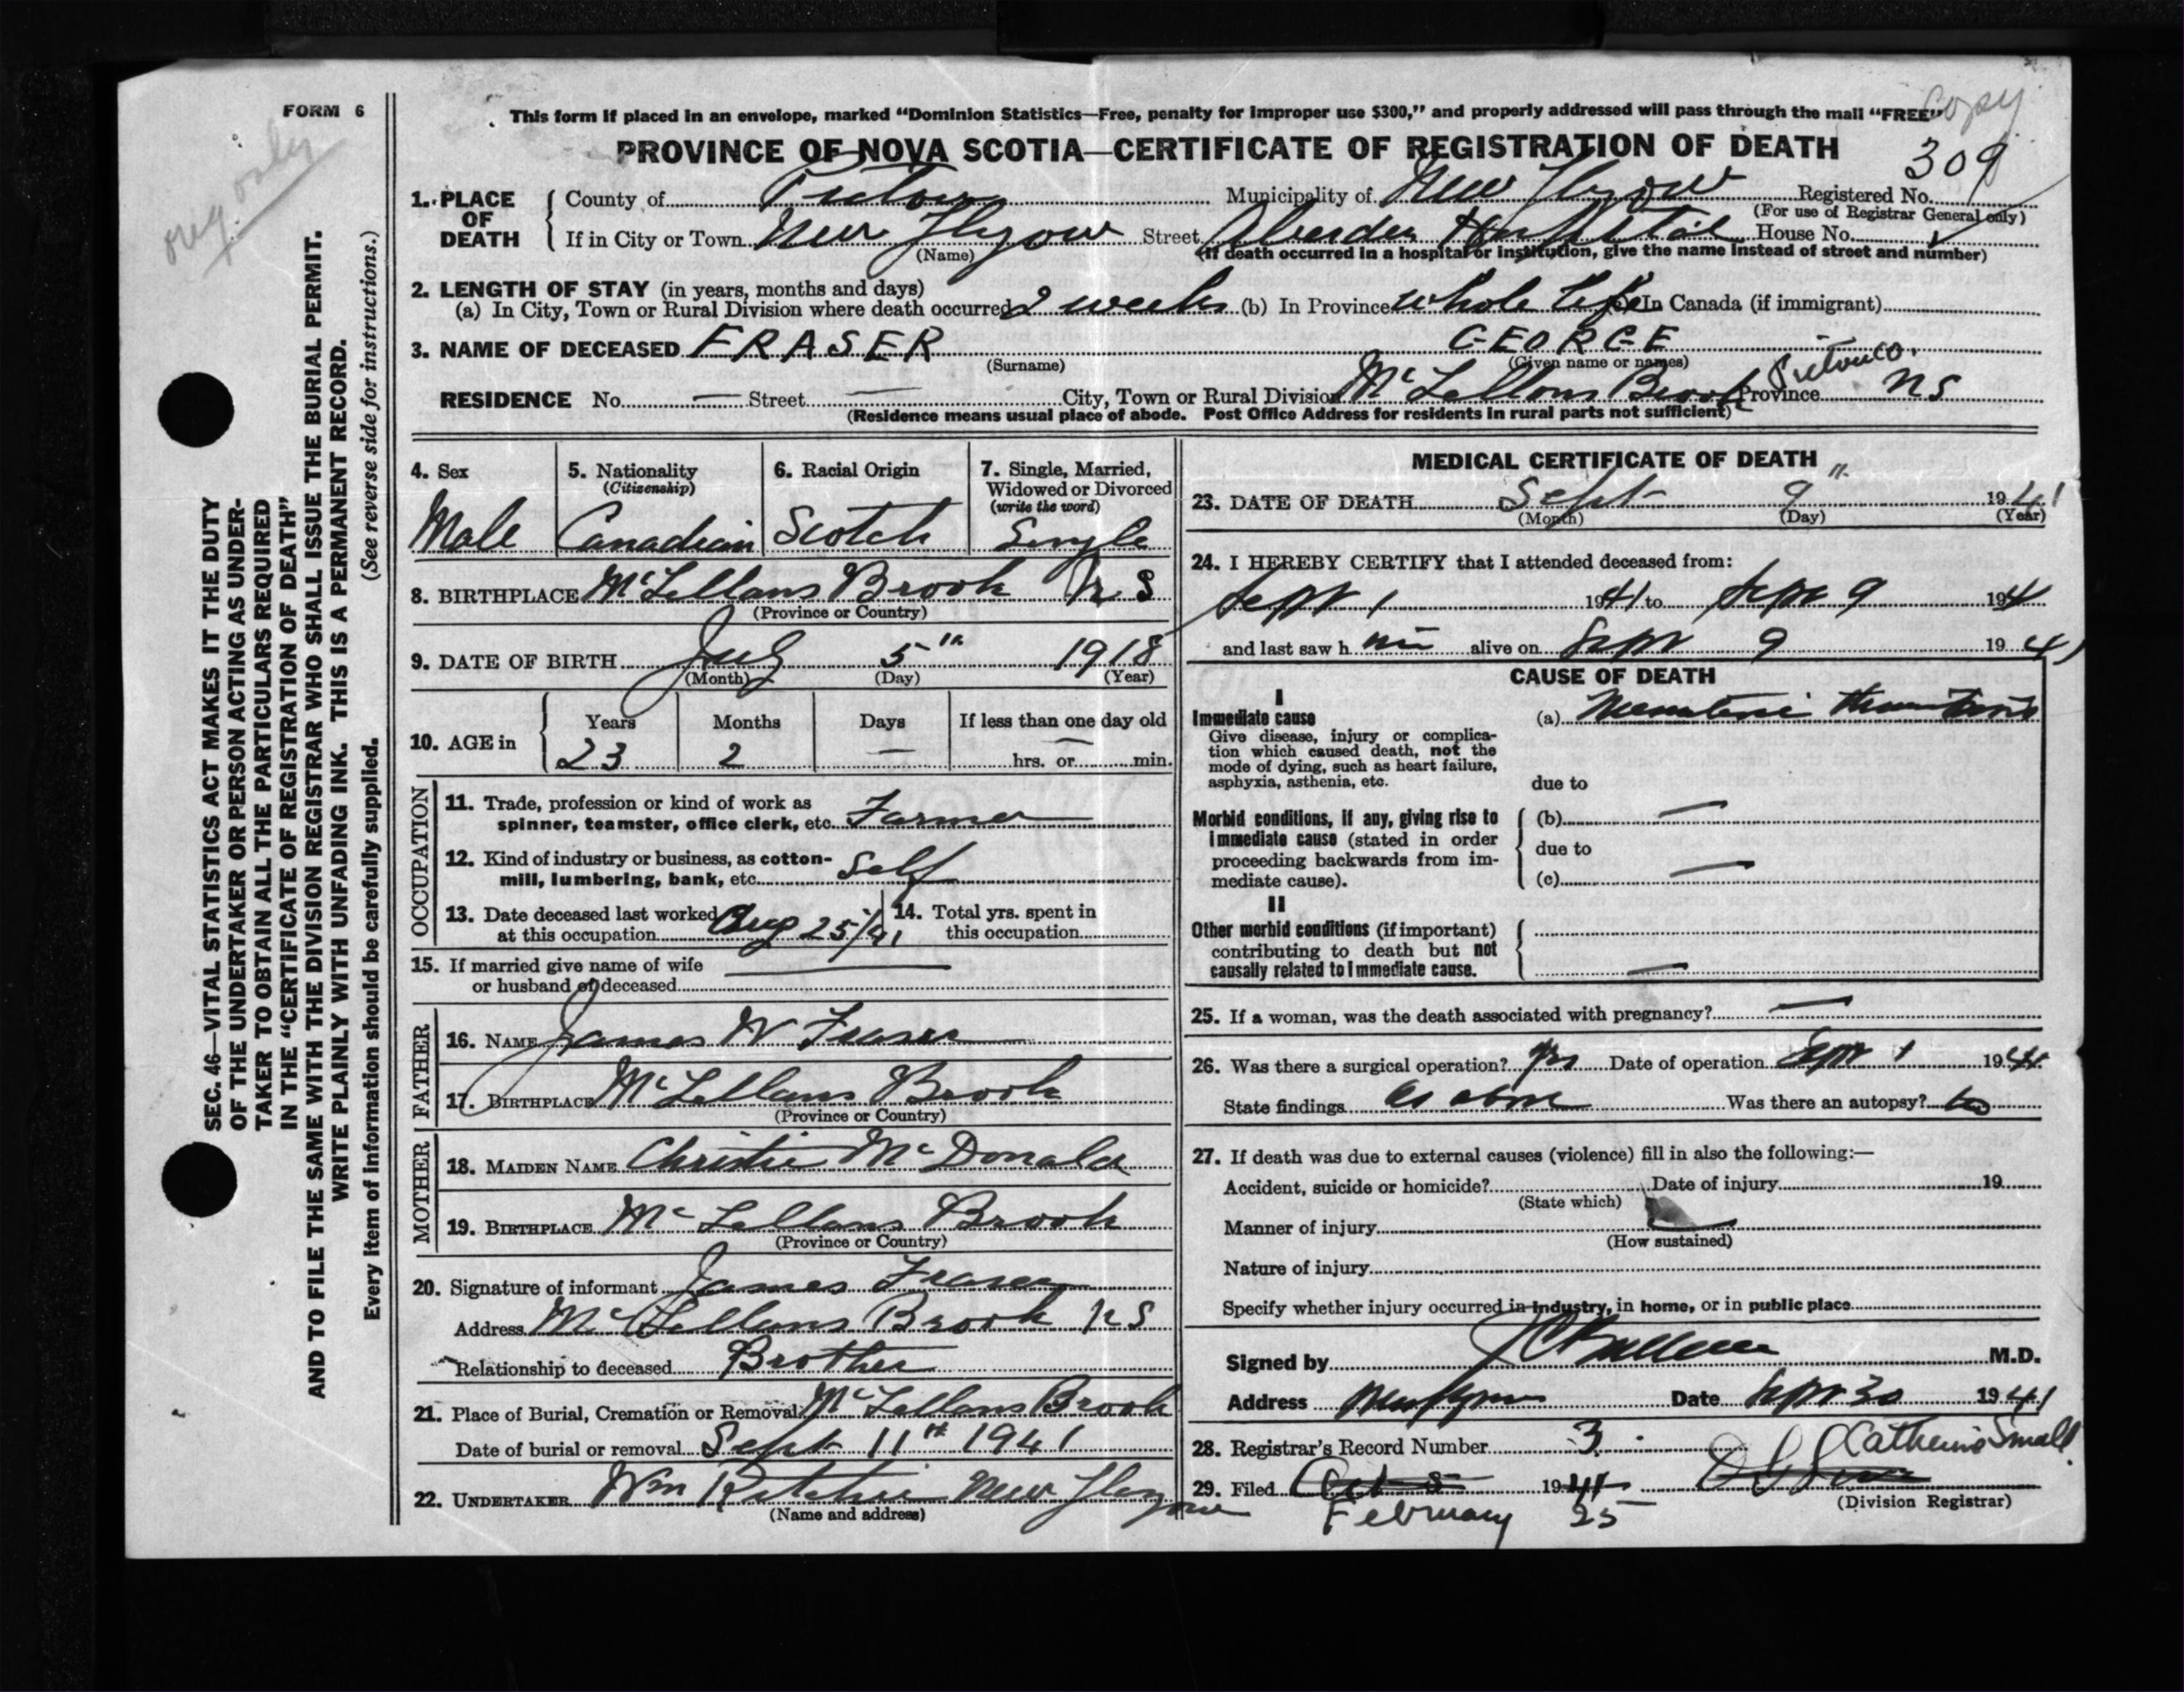 Copy
FORM 6
orig only
This form if placed in an envelope, marked “Dominion Statistics—Free, penalty for improper use $300,” and properly addressed will pass through the mail “FREE”
PROVINCE OF NOVA SCOTIA—CERTIFICATE OF REGISTRATION OF DEATH
309
1. PLACE OF DEATH
County of Pictou Municipality of New Glasgow Registered No.
(For use of Registrar General only)
If in City or Town New Glasgow Street Aberdeen Hospital House No.
(Name)
(If death occurred in a hospital or institution, give the name instead of street and number)
2. LENGTH OF STAY (in years, months and days)
(a) In City, Town or Rural Division where death occurred 2 weeks (b) In Province whole life (c) In Canada (if immigrant)
3. NAME OF DECEASED FRASER GEORGE
(Surname) (Given name or names)
Pictou Co.
RESIDENCE No. — Street — City, Town or Rural Division McLellans Brook Province NS
(Residence means usual place of abode. Post Office Address for residents in rural parts not sufficient)
4. Sex
Male
5. Nationality
(Citizenship)
Canadian
6. Racial Origin
Scotch
7. Single, Married,
Widowed or Divorced
(write the word)
Single
8. BIRTHPLACE McLellans Brook N S
(Province or Country)
9. DATE OF BIRTH July 5th 1918
(Month) (Day) (Year)
10. AGE in
Years Months Days If less than one day old
23 2 — —
hrs. or min.
OCCUPATION
11. Trade, profession or kind of work as
spinner, teamster, office clerk, etc. Farmer
12. Kind of industry or business, as cotton-
mill, lumbering, bank, etc. Self
13. Date deceased last worked
at this occupation Aug 25/41
14. Total yrs. spent in
this occupation
15. If married give name of wife
or husband of deceased
FATHER
16. NAME James W Fraser
17. BIRTHPLACE McLellans Brook
(Province or Country)
MOTHER
18. MAIDEN NAME Christie McDonald
19. BIRTHPLACE McLellans Brook
(Province or Country)
20. Signature of informant James Fraser
Address McLellans Brook N S
Relationship to deceased Brother
21. Place of Burial, Cremation or Removal McLellans Brook
Date of burial or removal Sept 11th 1941
22. UNDERTAKER Wm Ritchie New Glasgow
(Name and address)
MEDICAL CERTIFICATE OF DEATH
23. DATE OF DEATH Sept 9" 1941
(Month) (Day) (Year)
24. I HEREBY CERTIFY that I attended deceased from:
Sept 1 1941 to Sept 9 194
and last saw him alive on Sept 9 1941
CAUSE OF DEATH
I
Immediate cause
Give disease, injury or complica-
tion which caused death, not the
mode of dying, such as heart failure,
asphyxia, asthenia, etc.
(a) Mesenteric thrombosis
due to
Morbid conditions, if any, giving rise to
immediate cause (stated in order
proceeding backwards from im-
mediate cause).
(b) —
due to
(c) —
II
Other morbid conditions (if important)
contributing to death but not
causally related to immediate cause. —
25. If a woman, was the death associated with pregnancy? —
26. Was there a surgical operation? yes Date of operation Sept 1 1941
State findings as above Was there an autopsy? no
27. If death was due to external causes (violence) fill in also the following:—
Accident, suicide or homicide? Date of injury 19
(State which)
Manner of injury
(How sustained)
Nature of injury
Specify whether injury occurred in industry, in home, or in public place
Signed by M.D.
Address New Glasgow Date Sept 30 1941
28. Registrar's Record Number 3.
Catherine Small
29. Filed Oct 8 1941
February 25
(Division Registrar)
SEC. 46—VITAL STATISTICS ACT MAKES IT THE DUTY
OF THE UNDERTAKER OR PERSON ACTING AS UNDER-
TAKER TO OBTAIN ALL THE PARTICULARS REQUIRED
IN THE “CERTIFICATE OF REGISTRATION OF DEATH”
AND TO FILE THE SAME WITH THE DIVISION REGISTRAR WHO SHALL ISSUE THE BURIAL PERMIT.
WRITE PLAINLY WITH UNFADING INK. THIS IS A PERMANENT RECORD.
Every item of information should be carefully supplied. (See reverse side for instructions.)